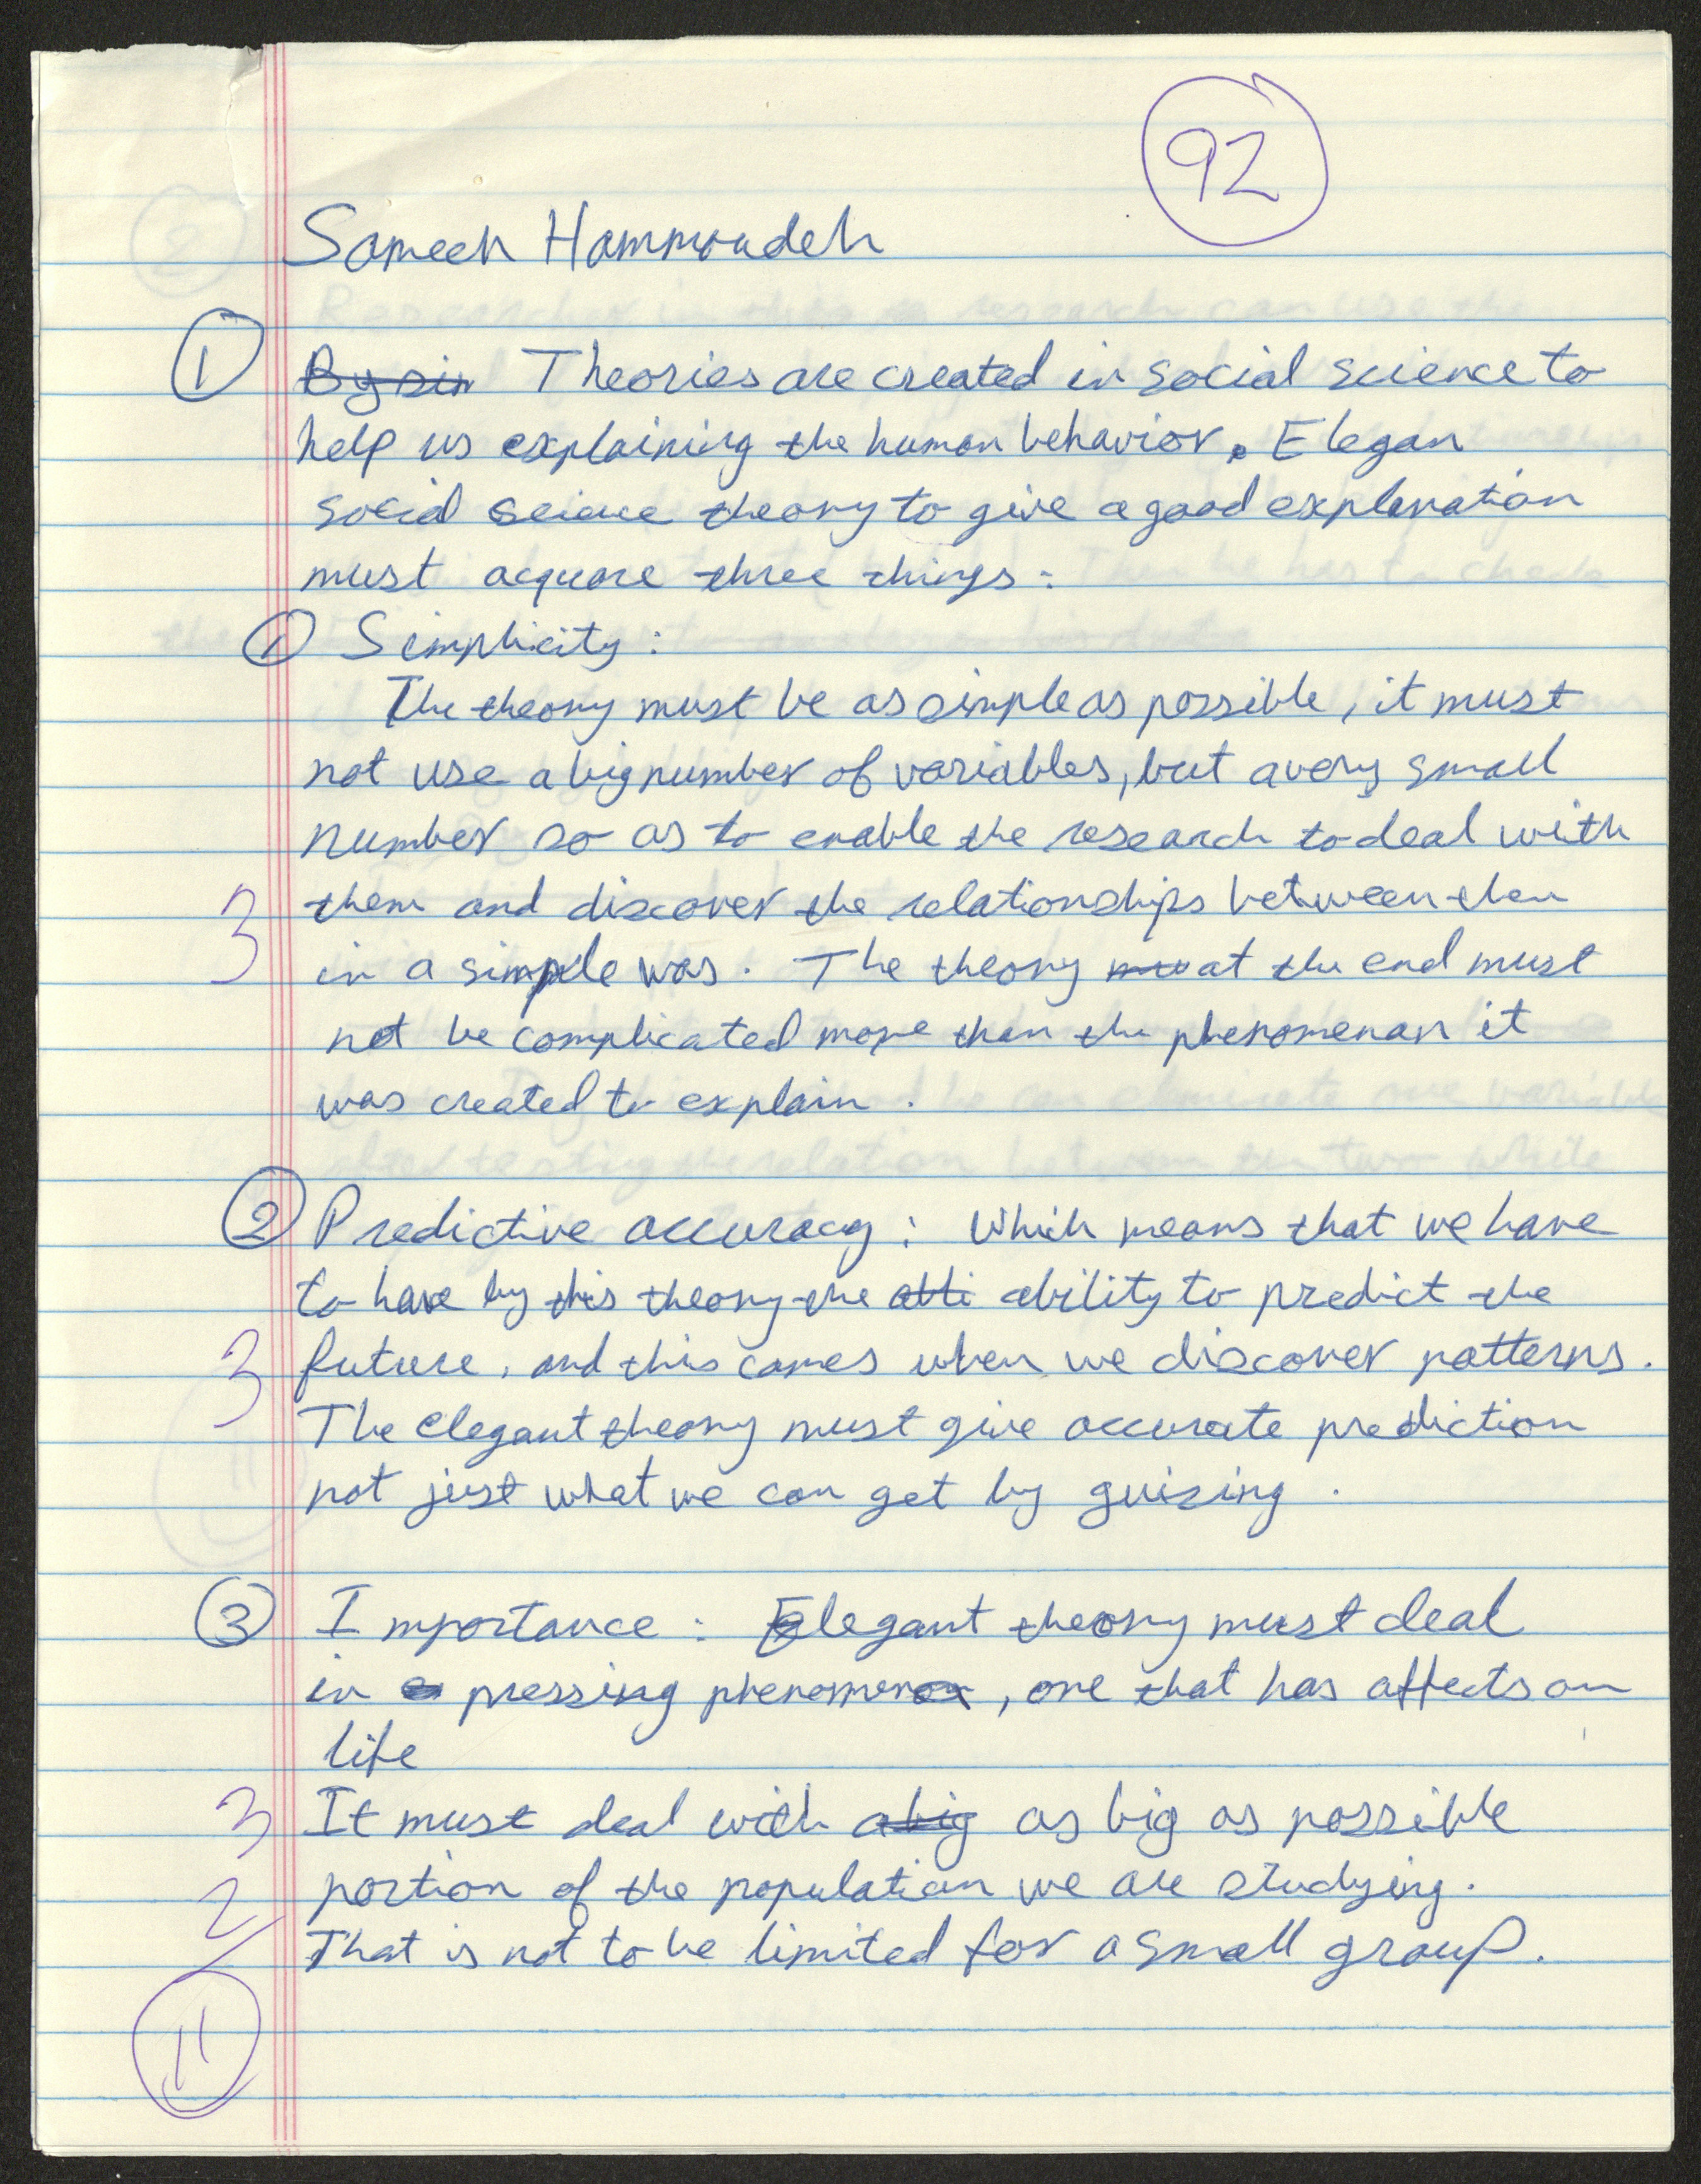 92
Sameeh Hammoudeh
1 By sin Theories are created in social science to
help us explaining the human behavior. Elegan
social science theory to give a good explenation
must acquare three things:
1 Simplicity:
The theory must be as simple as possible, it must
not use a big number of variables, but a very small
number so as to enable the research to deal with
3 them and discover the relationships between then
in a simple was. The theory mu at the end must
not be complicated more than the phenomenan it
was created to explain.
2 Predictive accuracy: Which means that we have
to have by this theory the abli ability to predict the
3 future, and this comes when we discover patterns.
The elegant theory must give accurate prediction
not just what we can get by guising.
3 Importance: Elegant theory must deal
in pressing phenomenon, one that has affects on
life
3 It must deal with a big as big as possible
2 portion of the population we are studying.
That is not to be limited for a small group.
11